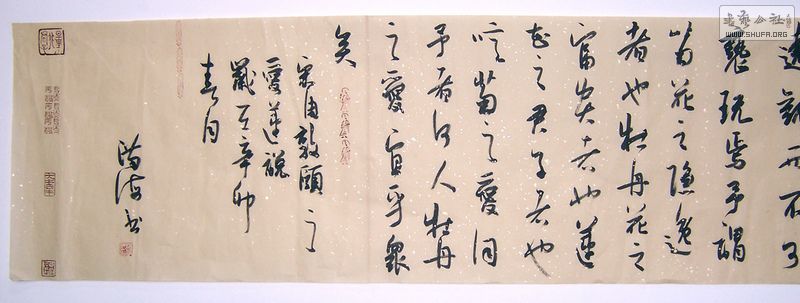 遠觀而不可
褻玩焉予謂
菊花之隱逸
者也牡丹花之
富貴者也蓮
花之君子者也
噫菊之愛同
予者何人牡丹
之愛宜乎眾
矣
宋周敦頤之
愛蓮説
歲在辛卯
春月
海書
公社
WWW.SHUFA.ORG